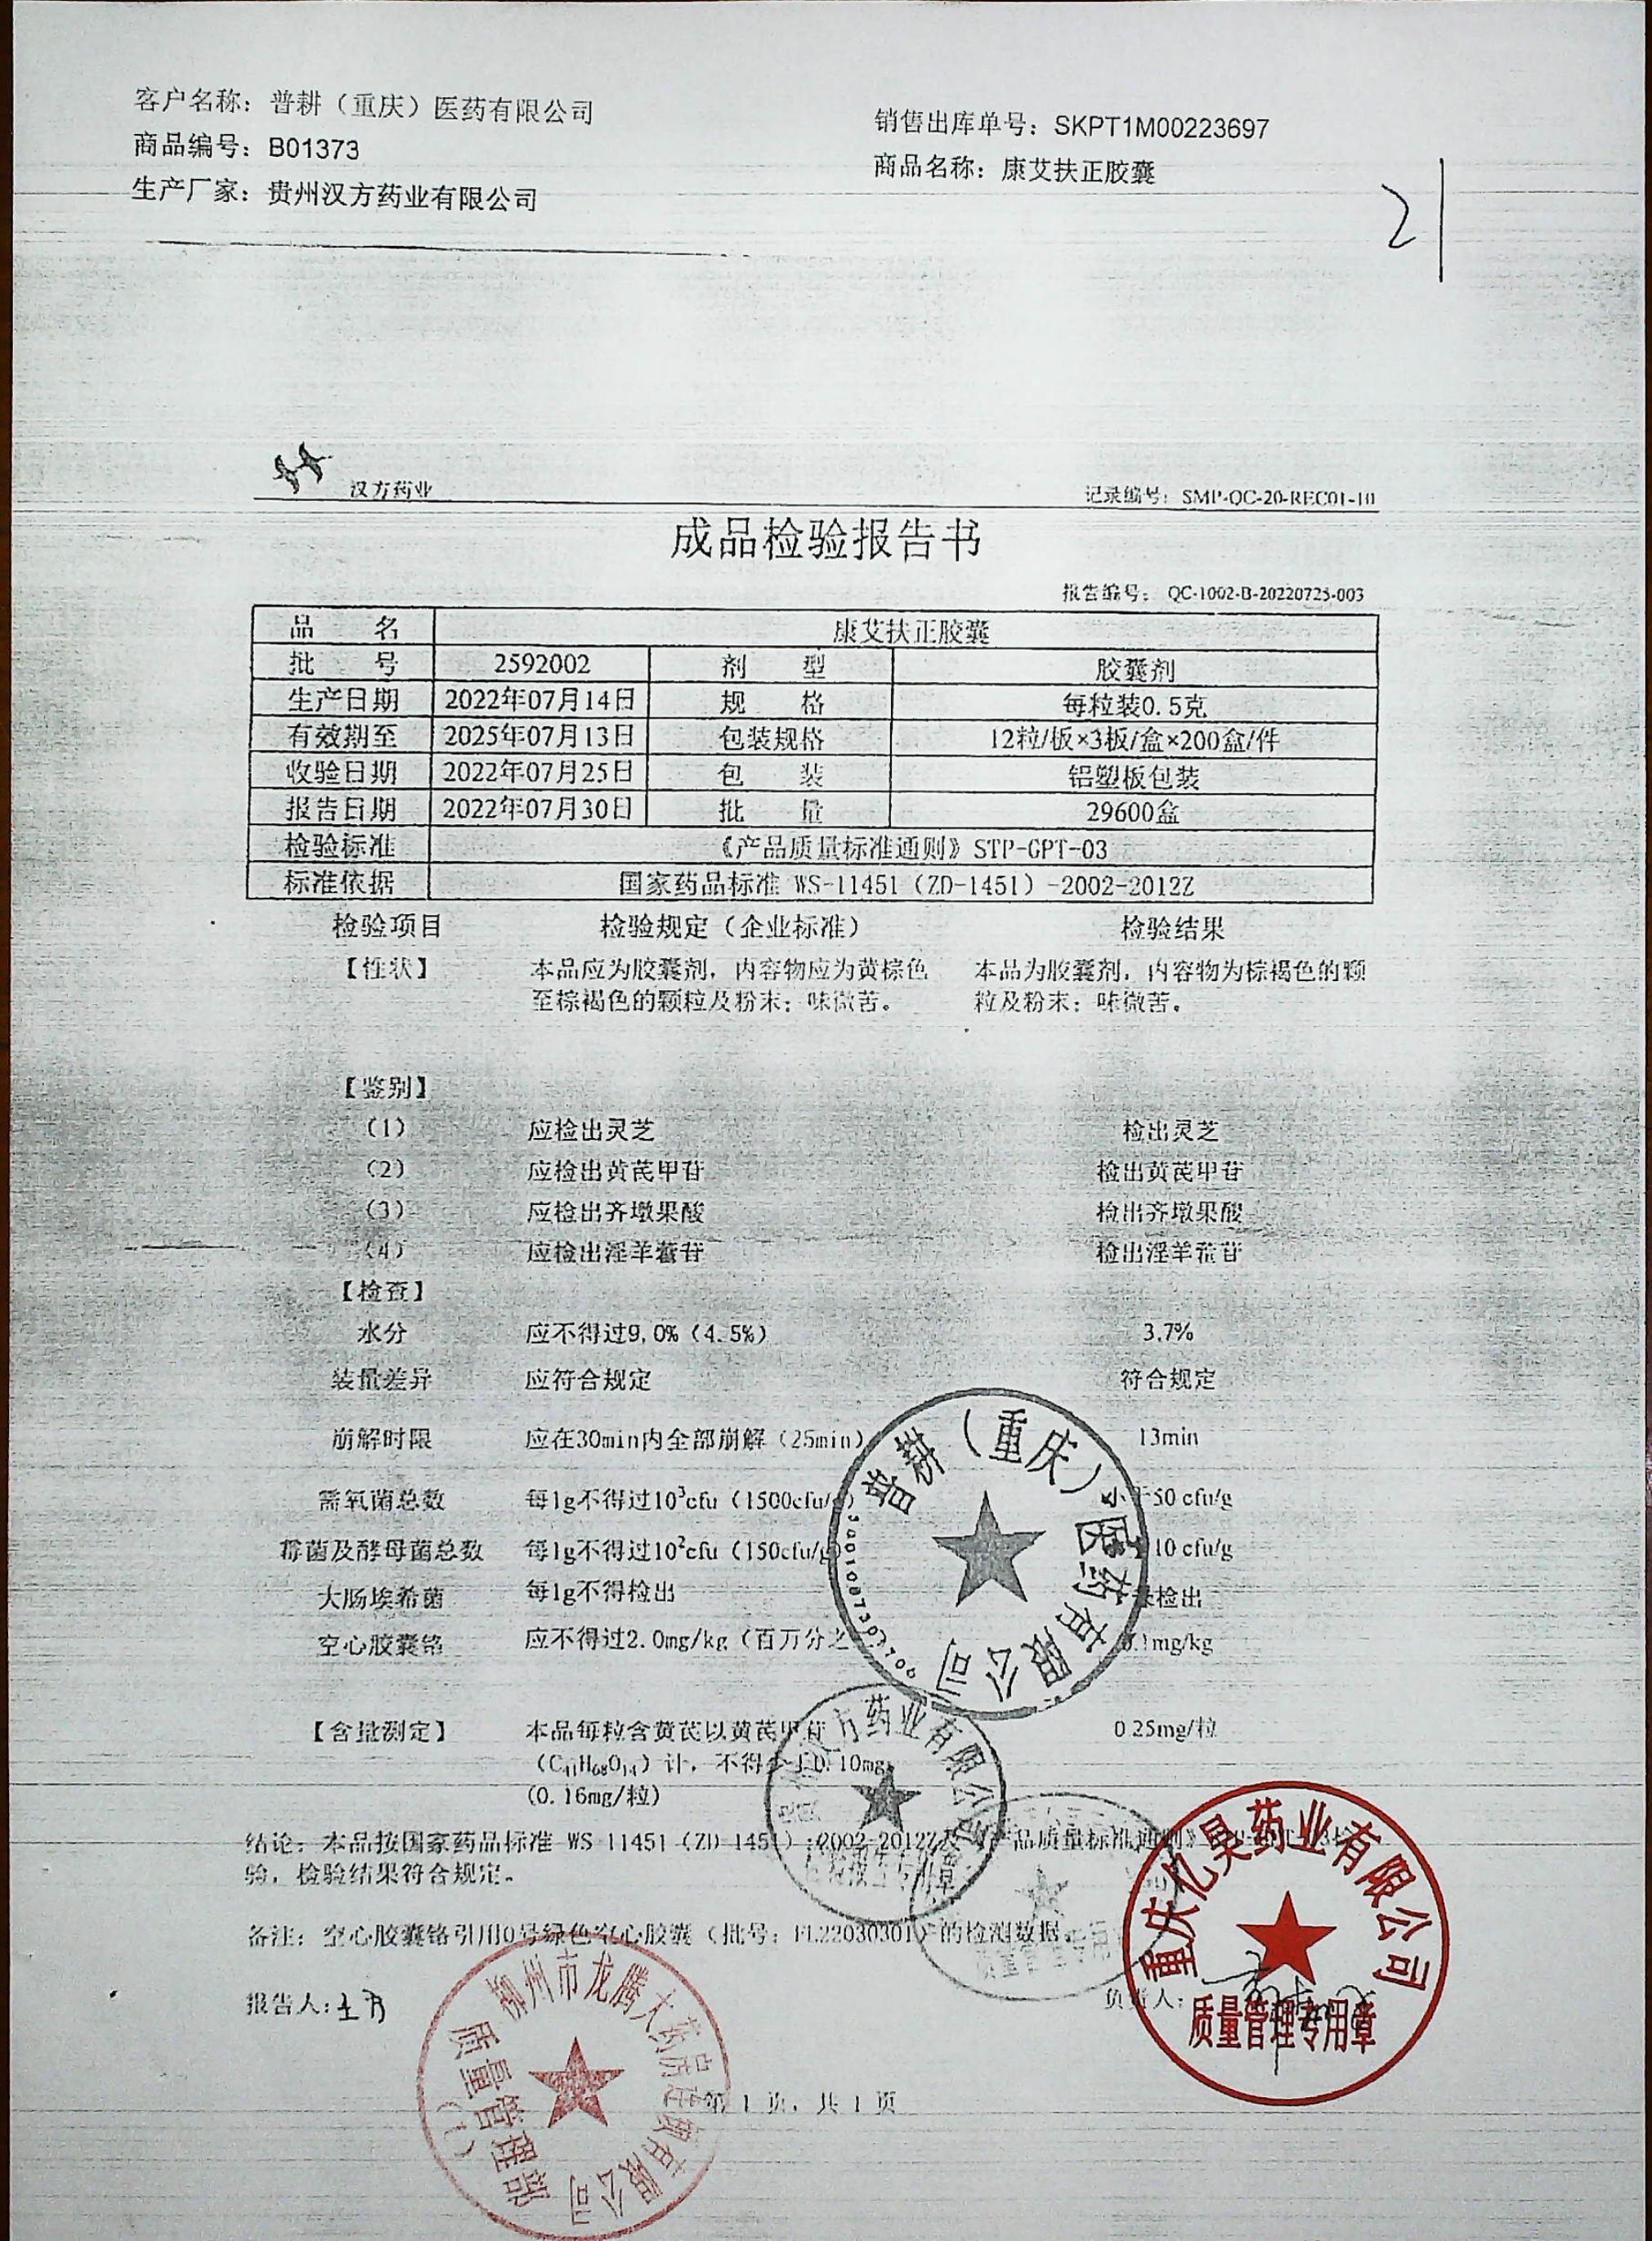 客户名称：普耕（重庆）医药有限公司
销售出库单号：SKPT1M00223697
商品编号：B01373
商品名称：康艾扶正胶囊
生产厂家：贵州汉方药业有限公司
21
汉方药业
记录编号：SMP-QC-20-REC01-10
成品检验报告书
报告编号：QC-1002-B-20220725-003
品名 康艾扶正胶囊
批号 2592002 剂型 胶囊剂
生产日期 2022年07月14日 规格 每粒装0.5克
有效期至 2025年07月13日 包装规格 12粒/板×3板/盒×200盒/件
收验日期 2022年07月25日 包装 铝塑板包装
报告日期 2022年07月30日 批量 29600盒
检验标准 《产品质量标准通则》STP-GPT-03
标准依据 国家药品标准 WS-11451（ZD-1451）-2002-2012Z
检验项目 检验规定（企业标准） 检验结果
【性状】 本品应为胶囊剂，内容物应为黄棕色 本品为胶囊剂，内容物为棕褐色的颗
至棕褐色的颗粒及粉末；味微苦。 粒及粉末；味微苦。
【鉴别】
（1） 应检出灵芝 检出灵芝
（2） 应检出黄芪甲苷 检出黄芪甲苷
（3） 应检出齐墩果酸 检出齐墩果酸
（4） 应检出淫羊藿苷 检出淫羊藿苷
【检查】
水分 应不得过9.0%（4.5%） 3.7%
装量差异 应符合规定 符合规定
崩解时限 应在30min内全部崩解（25min） 13min
需氧菌总数 每1g不得过10³cfu（1500cfu/g） 小于50 cfu/g
霉菌及酵母菌总数 每1g不得过10²cfu（150cfu/g 10 cfu/g
大肠埃希菌 每1g不得检出 未检出
空心胶囊铬 应不得过2.0mg/kg（百万分之 0.1mg/kg
【含量测定】 本品每粒含黄芪以黄芪甲苷 0.25mg/粒
（C₄₁H₆₈O₁₄）计，不得少于0.10mg
(0.16mg/粒)
结论：本品按国家药品标准 WS-11451（ZD-1451）-2002-2012Z及《产品质量标准通则》STP-GPT-03检
验，检验结果符合规定。
备注：空心胶囊铬引用0号绿色空心胶囊（批号：FL22030301）的检测数据。
报告人：
负责人：
第 1 页，共 1 页
普耕（重庆）医药有限公司
药业有限公司
检验报告专用章
质量管理专用
重庆亿昊药业有限公司
质量管理专用章
柳州市龙腾大药房连锁有限公司
质量管理部
（1）